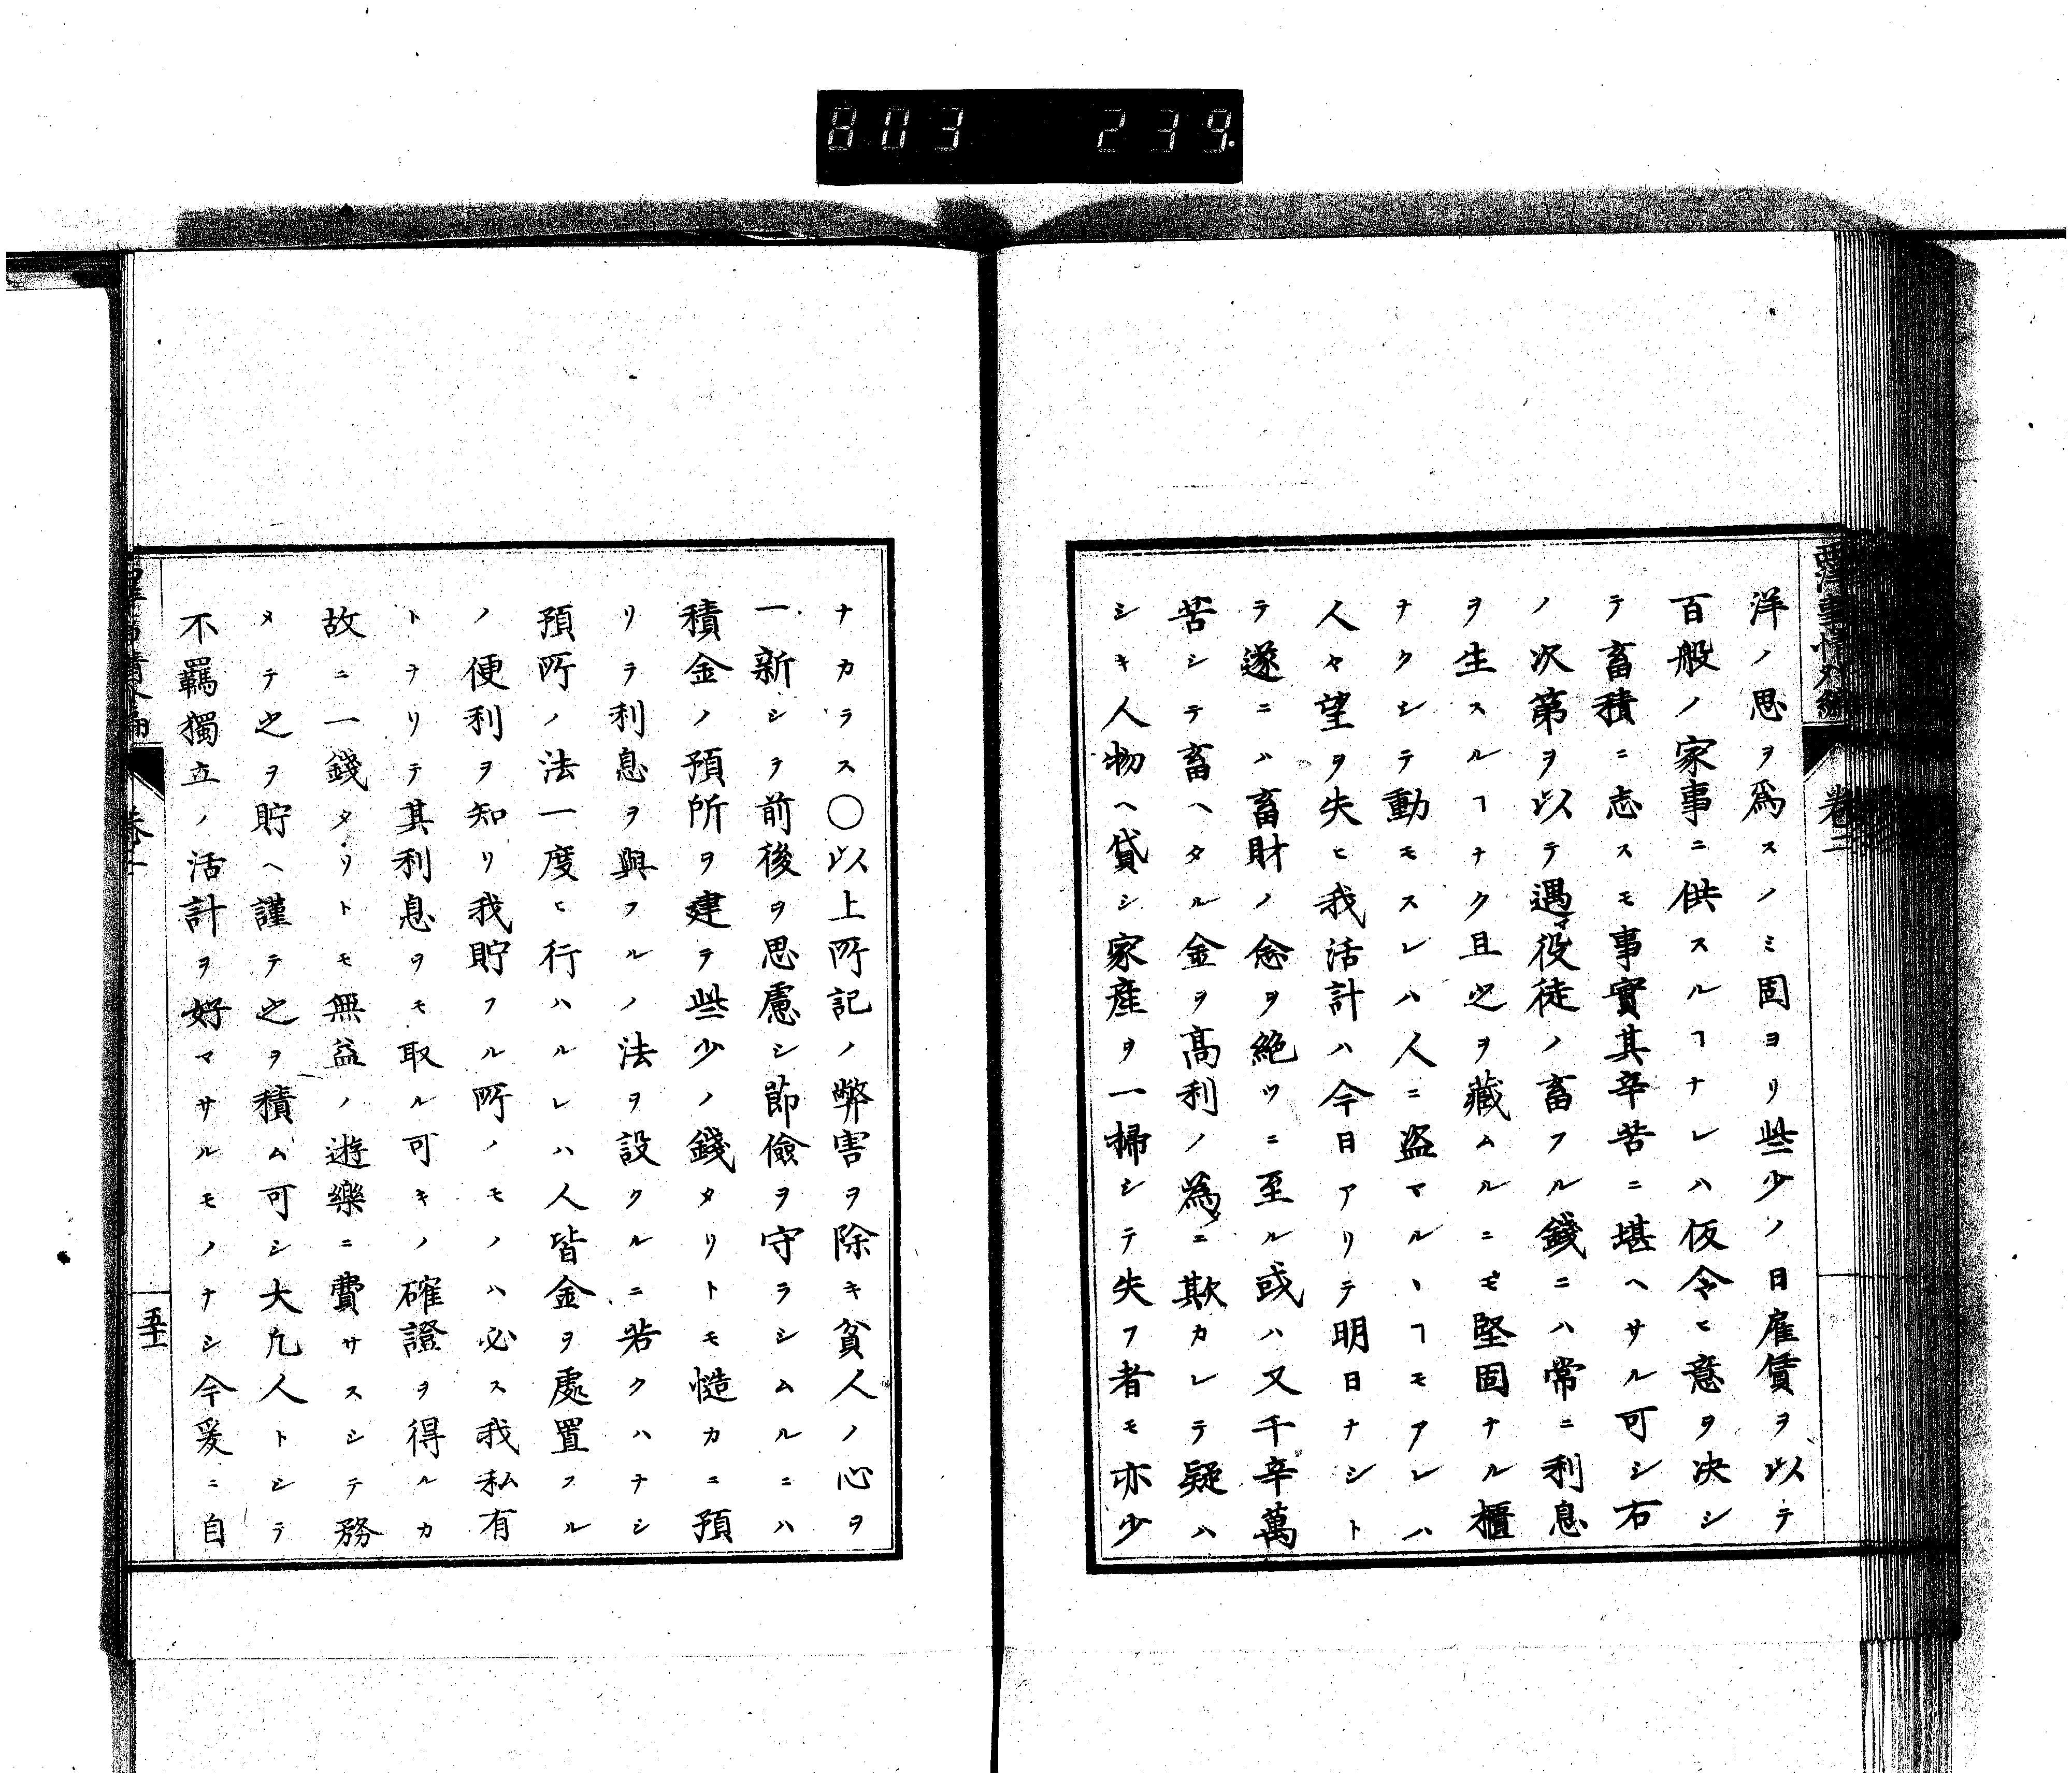 803 239.
西洋事情外編 卷二
洋ノ思ヲ爲スノミ固ヨリ些少ノ日雇賃ヲ以テ
百般ノ家事ニ供スルヿナレハ仮令ヒ意ヲ决シ
テ畜積ニ志スモ事實其辛苦ニ堪ヘサル可シ右
ノ次第ヲ以テ遇マ役徒ノ畜フル錢ニハ常ニ利息
ヲ生スルヿナク且之ヲ藏ムルニモ堅固ナル櫃
ナクシテ動モスレハ人ニ盗マルヽヿモアレハ
人々望ヲ失ヒ我活計ハ今日アリテ明日ナシト
テ遂ニハ畜財ノ念ヲ絶ツニ至ル或ハ又千辛萬
苦シテ畜ヘタル金ヲ高利ノ爲ニ欺カレテ疑ハ
シキ人物ヘ貸シ家産ヲ一掃シテ失フ者モ亦少
ナカラス〇以上所記ノ弊害ヲ除キ貧人ノ心ヲ
一新シテ前後ヲ思慮シ節儉ヲ守ラシムルニハ
積金ノ預所ヲ建テ些少ノ錢タリトモ慥カニ預
リテ利息ヲ與フルノ法ヲ設クルニ若クハナシ
預所ノ法一度ヒ行ハルレハ人皆金ヲ處置フル
ノ便利ヲ知リ我貯フル所ノモノハ必ス我私有
トナリテ其利息ヲモ取ル可キノ確證ヲ得ルカ
故ニ一錢タリトモ無益ノ遊樂ニ費サスシテ務
メテ之ヲ貯ヘ謹テ之ヲ積ム可シ大凢人トシテ
不羈獨立ノ活計ヲ好マサルモノナシ今爰ニ自
五十